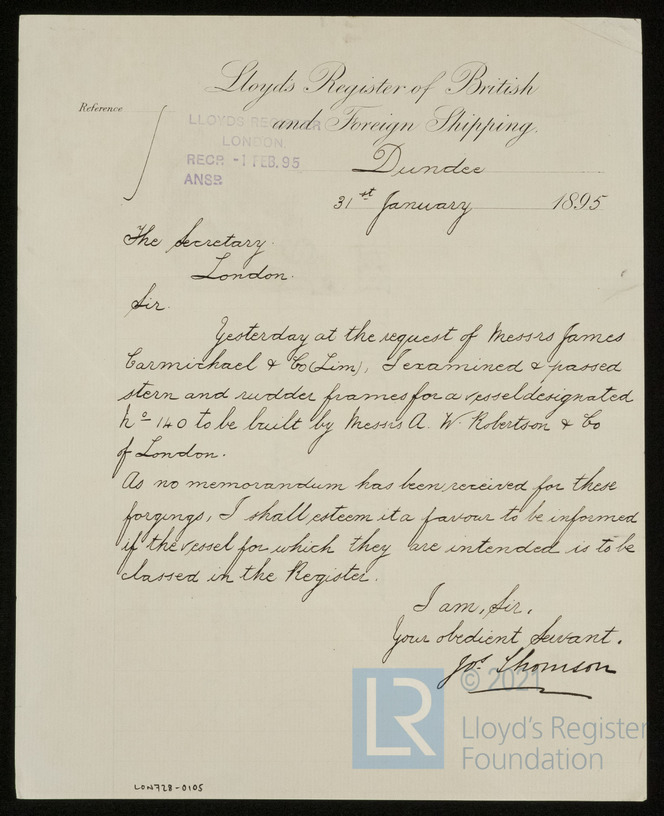 Lloyds Register of British
and Foreign Shipping.
Reference
LLOYDS REGISTER
LONDON
RECR -1 FEB. 95
ANSR
Dundee
31st January 1895
The Secretary.
London.
Sir.
Yesterday at the request of Messrs James
Carmichael & Co (Lim), I examined & passed
stern and rudder frames for a vessel designated
No 140 to be built by Messrs A. W. Robertson & Co
of London.
As no memorandum has been received for these
forgings, I shall esteem it a favour to be informed
if the vessel for which they are intended is to be
classed in the Register.
I am, Sir,
Your obedient Servant.
Jos. Thomson
LR
© 2021
Lloyd's Register
Foundation
LON728-0105